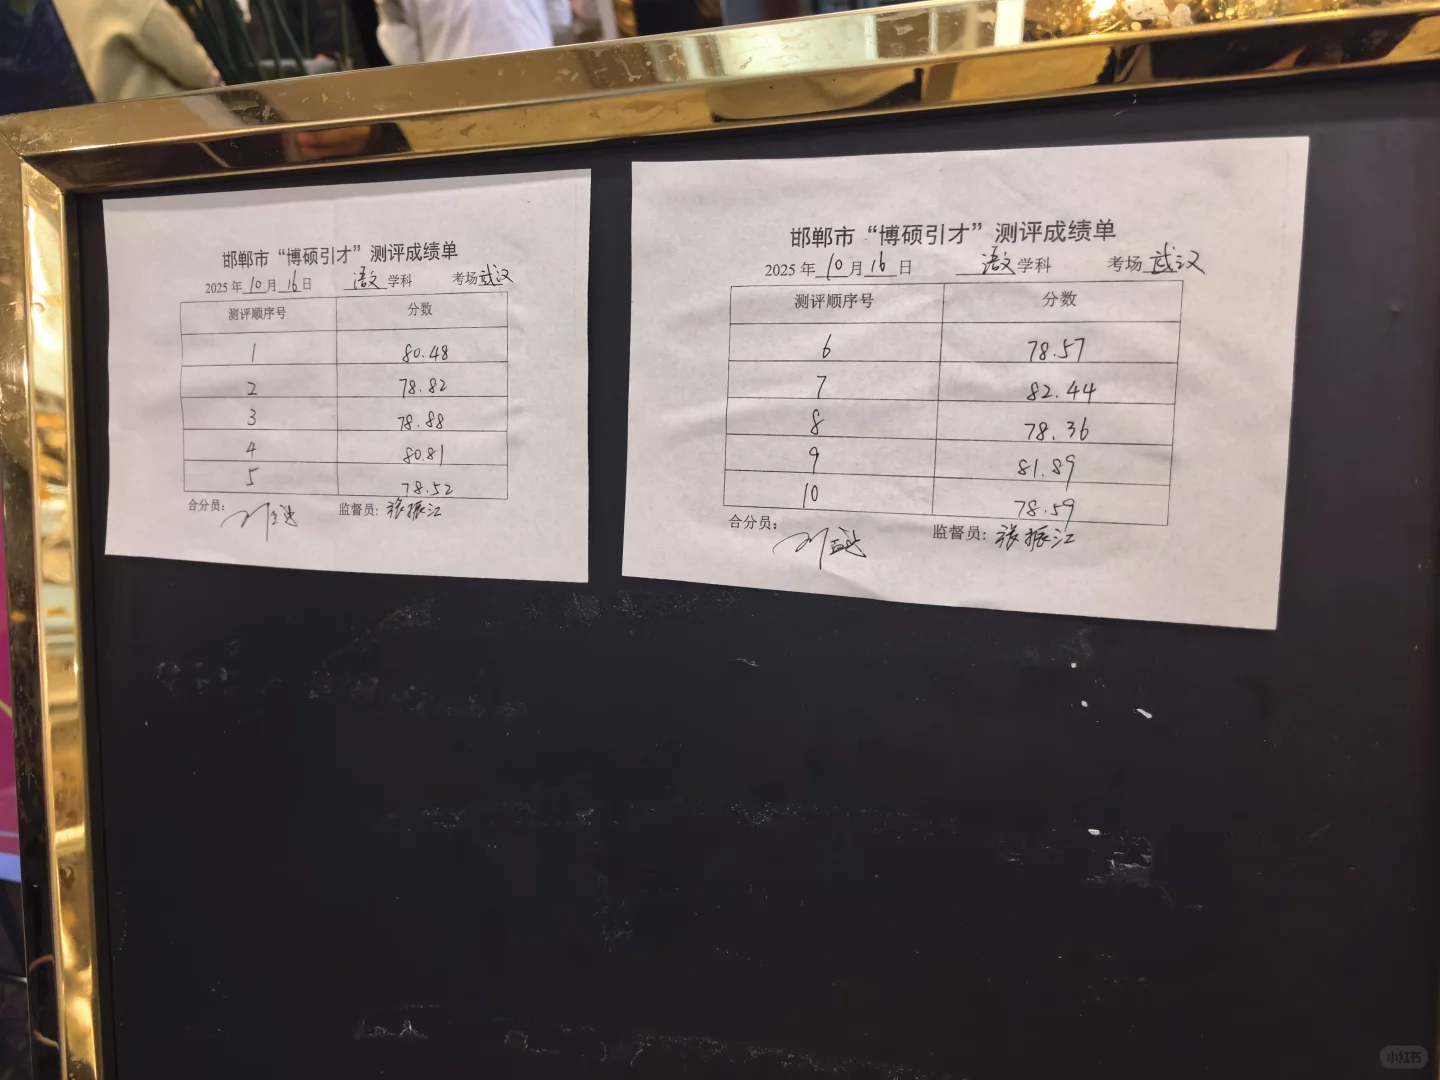 邯郸市“博硕引才”测评成绩单
2025年10月16日 语文学科 考场武汉
测评顺序号 分数
1 80.48
2 78.82
3 78.88
4 80.81
5 78.52
合分员： 监督员：张振江
邯郸市“博硕引才”测评成绩单
2025年10月16日 语文学科 考场武汉
测评顺序号 分数
6 78.57
7 82.44
8 78.36
9 81.89
10 78.59
合分员： 监督员：张振江
小红书